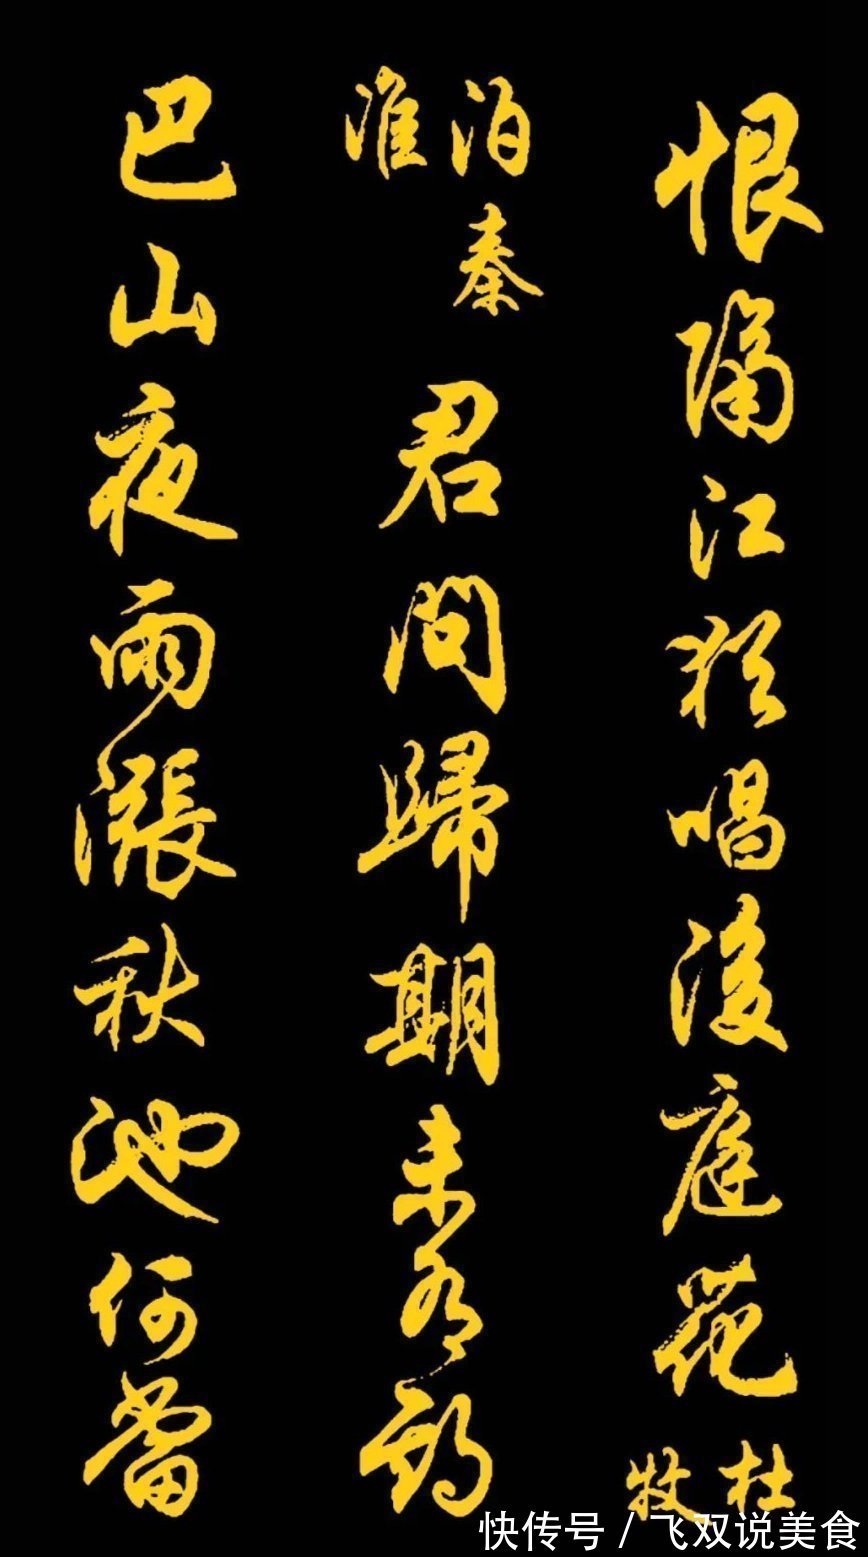 恨隔江犹唱後庭花
杜牧
泊秦淮
君問歸期未有期
巴山夜雨漲秋池何當
快传号/飞双说美食